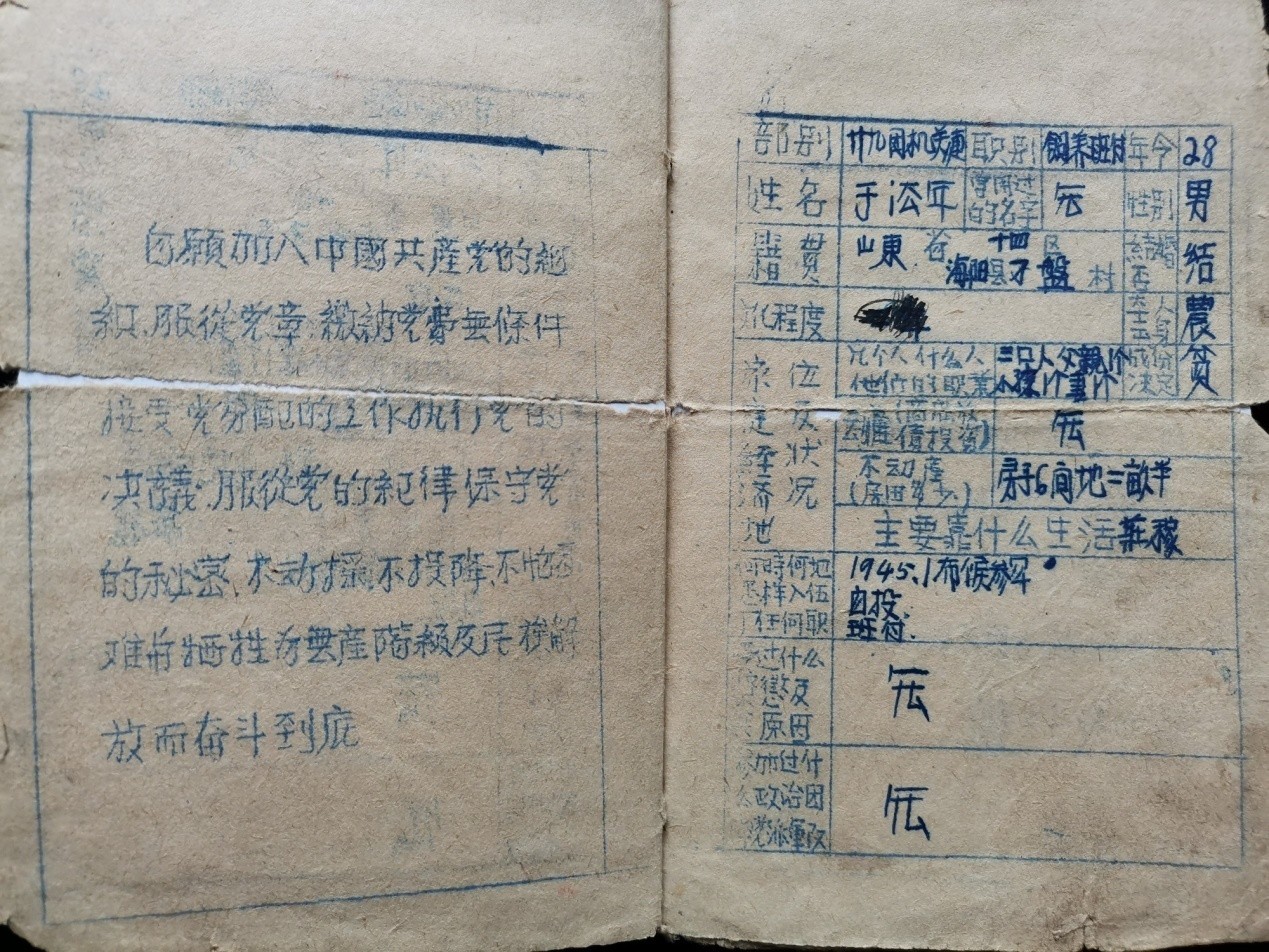 自願加入中國共產党的組
織，服從党章，繳納党費無條件
接受党分配的工作执行党的
决議，服從党的紀律保守党
的秘密，不动摇，不投降，不怕困
难 牺牲 為無產階級及民族解
放而奋斗到底
部别 廿九团机关連 职别 飼养班付 年令 28
姓名 于 年 曾用过的名字 无 性别 男
籍贯 山東省海阳县十四区 盤村 結婚否 結
化程度
本人出身 農
家庭 位及 經济 状况
几个人什么人他们的职業 三口人父親1个小孩1个妻1个 成份决定 贫
动產 債投資) 无
不动產(房田多少) 房子6间地二畝半
主要靠什么生活 莊稼
何時何地怎样入伍 任何职
1945.1 布候参军
自投.
班付.
过什么 惩及 原因 无
参加过什么政治团 党派軍队 无